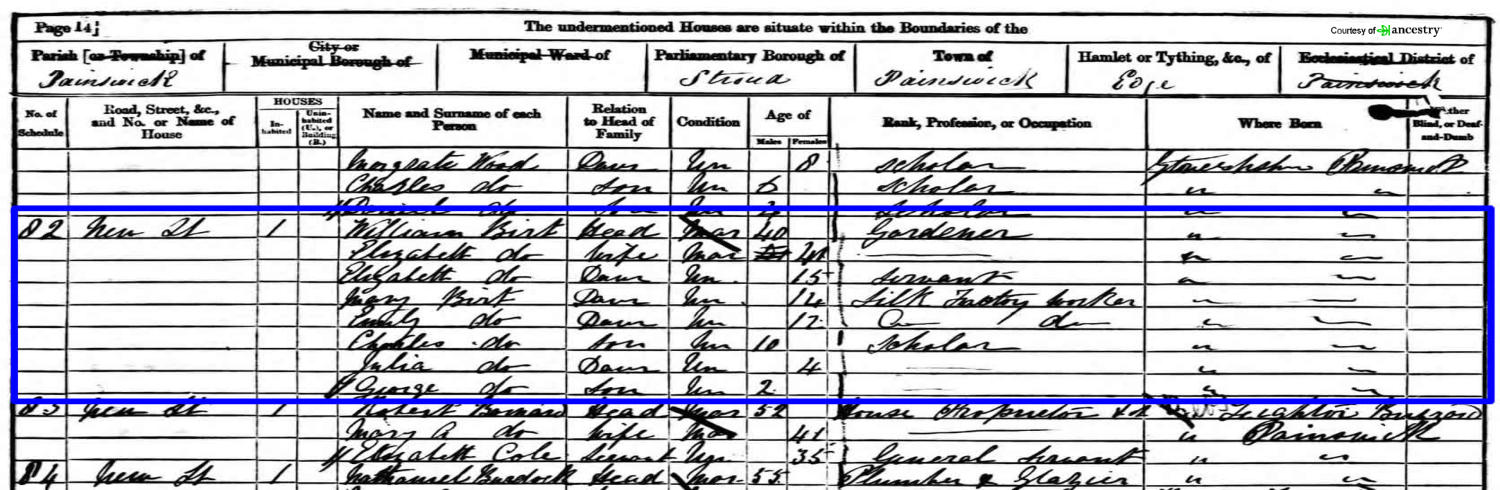 Page 14
The undermentioned Houses are situate within the Boundaries of the
Courtesy of ancestry
Parish [or Township] of
City or Municipal Borough of
Municipal Ward of
Parliamentary Borough of
Town of
Hamlet or Tything, &c., of
Ecclesiastical District of
Painswick Stroud Painswick Edge Painswick
No. of Schedule
Road, Street, &c., and No. or Name of House
HOUSES
In-habited
Unin-habited (U.), or Building (B.)
Name and Surname of each Person
Relation to Head of Family
Condition
Age of
Males Females
Rank, Profession, or Occupation
Where Born
Blind, or Deaf-and-Dumb
Wood Daur Un 8 scholar
Charles do son Un 6 scholar " "
do son Un scholar " "
82 New St 1 William Birt Head Mar 40 Gardener " "
Elizabeth do wife Mar 41 " "
Elizabeth do Daur Un 15 servant " "
Mary Birt Daur Un 14 Silk Factory worker " "
Emily do Daur Un 12 do " "
Charles do son Un 10 Scholar " "
Julia do Daur Un 4 " "
George do son Un 2 " "
83 New St 1 Robert Head Mar 52 House Proprietor Leighton Buzzard
Mary A do wife Mar 41 " Painswick
Elizabeth Cole Servant Un 35 General servant " "
84 New St 1 Nathaniel Burdock Head Mar 55 Plumber & Glazier " "